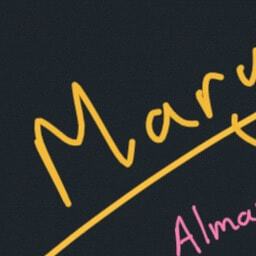 Mary
Alma